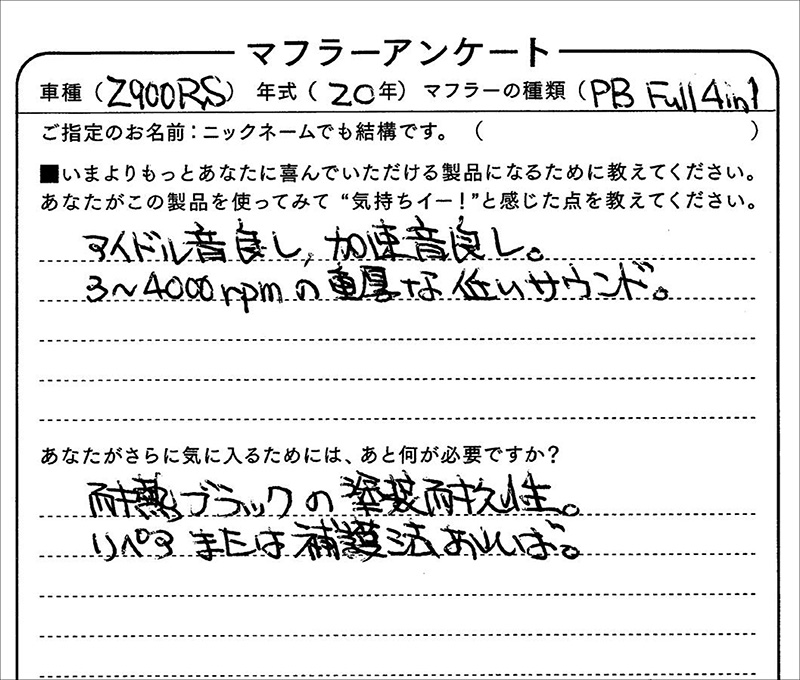 マフラーアンケート
車種（Z900RS）年式（20年）マフラーの種類（PB Full 4in1）
ご指定のお名前：ニックネームでも結構です。（ ）
■いまよりもっとあなたに喜んでいただける製品になるために教えてください。
あなたがこの製品を使ってみて“気持ちイー！”と感じた点を教えてください。
アイドル音良し，加速音良し。
3～4000rpmの重厚な低いサウンド。
あなたがさらに気に入るためには、あと何が必要ですか？
耐熱ブラックの塗装耐久性。
リペアまたは補護法あれば。